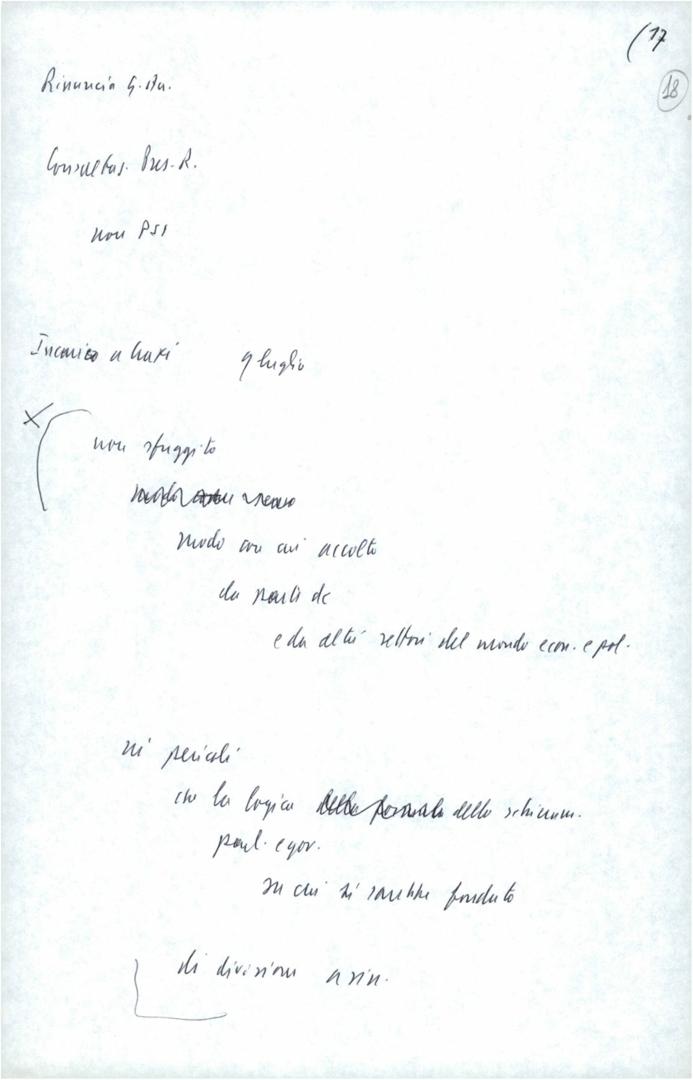 (17
18
Rinuncia G.sta.
Consultaz. Pres. R.
non PSI
Incarico a Craxi 9 luglio
non sfuggito
modo con cui accolto
da parti dc
e da altri settori del mondo econ. e pol.
ni pericoli
che la logica della formula dello schieram.
parl. e gov.
su cui si sarebbe fondato
di divisioni a sin.